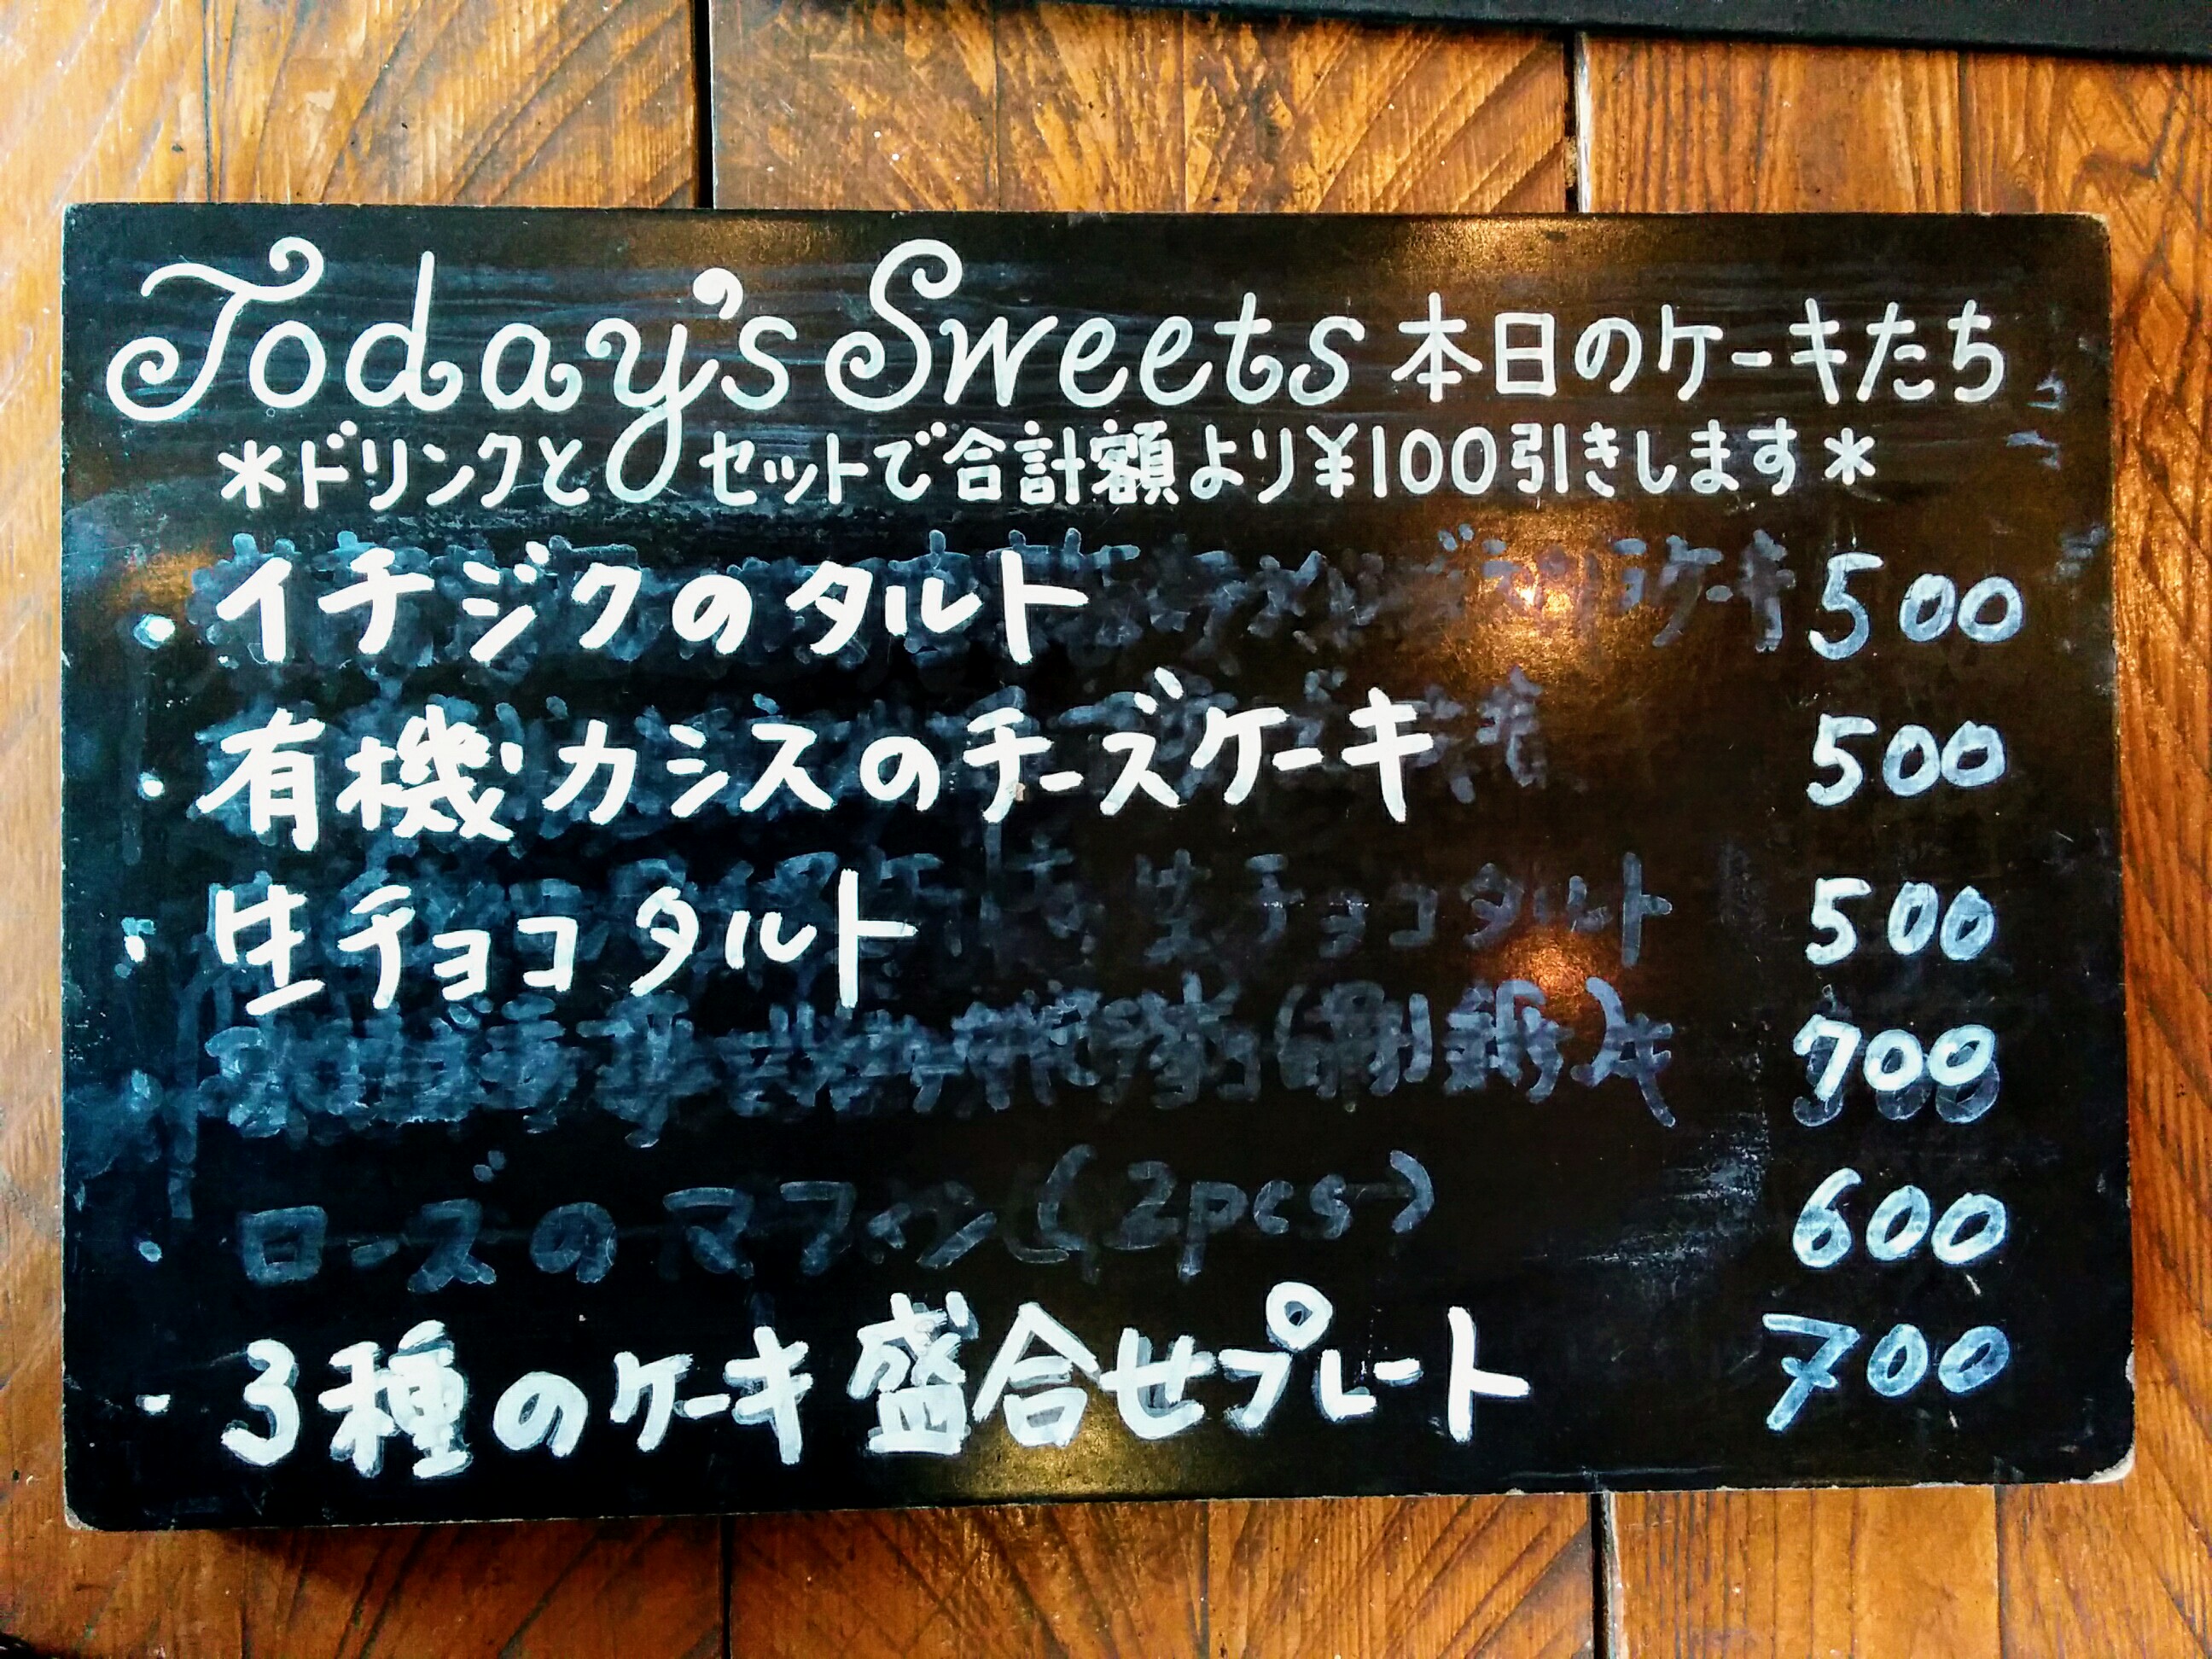 Today's Sweets 本日のケーキたち
*ドリンクと セットで合計額より¥100引きします*
・イチジクのタルト 500
・有機カシスのチーズケーキ 500
・生チョコタルト 生チョコタルト 500
700
・ローズのマフィン(2pcs) 600
・3種のケーキ盛合せプレート 700